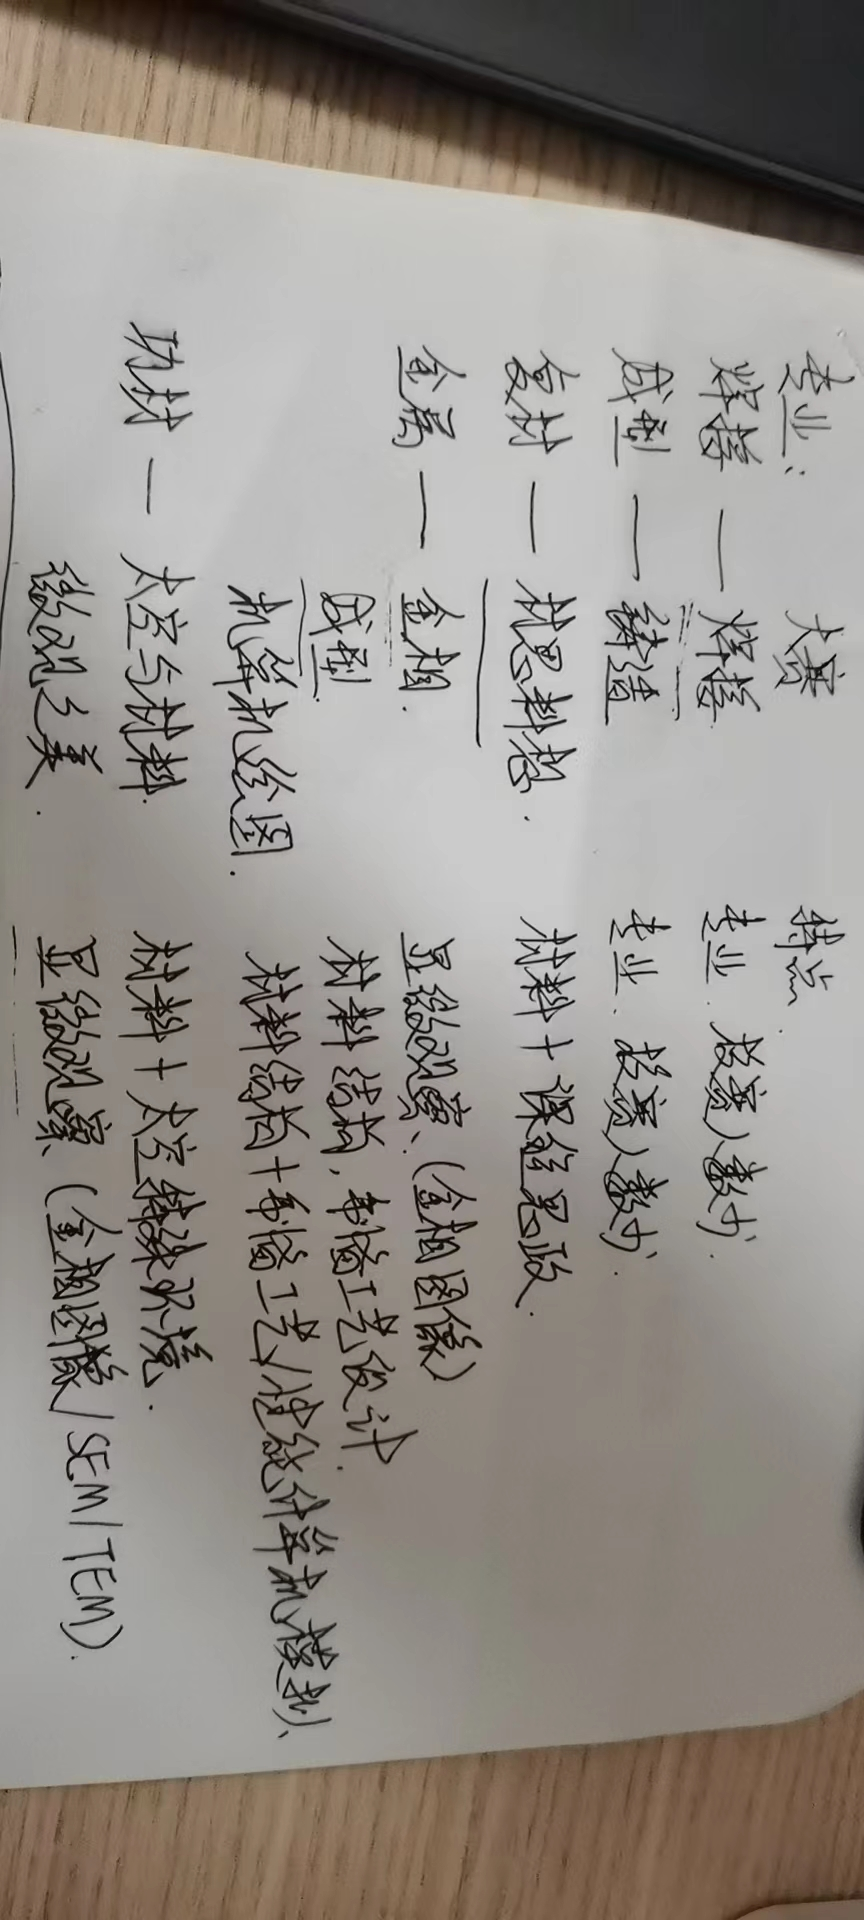 专业: 大赛 特点.
焊接 — 焊接 专业、校赛人数少.
成型 — 铸造 专业、校赛人数少.
复材 — 材思料想. 材料+课程思政.
金属 — 金相. 显微观察、(金相图像)
成型. 材料结构,制备工艺设计.
机算机绘图. 材料结构+制备工艺/性能计算机模拟、
功材 — 太空与材料. 材料+太空特殊环境.
微观之美. 显微观察(金相图像/SEM/TEM).